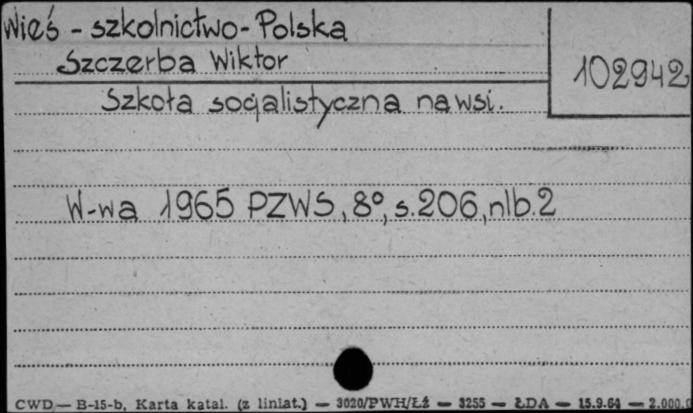 Wieś - szkolnictwo - Polska
Szczerba Wiktor
102942
Szkoła socjalistyczna na wsi.
W-wa 1965 PZWS, 8°, s. 206, nlb. 2
CWD — B-15-b, Karta katal. (z liniat.) — 3020/PWH/Łź — 3255 — ŁDA — 15.9.64 — 2.000.